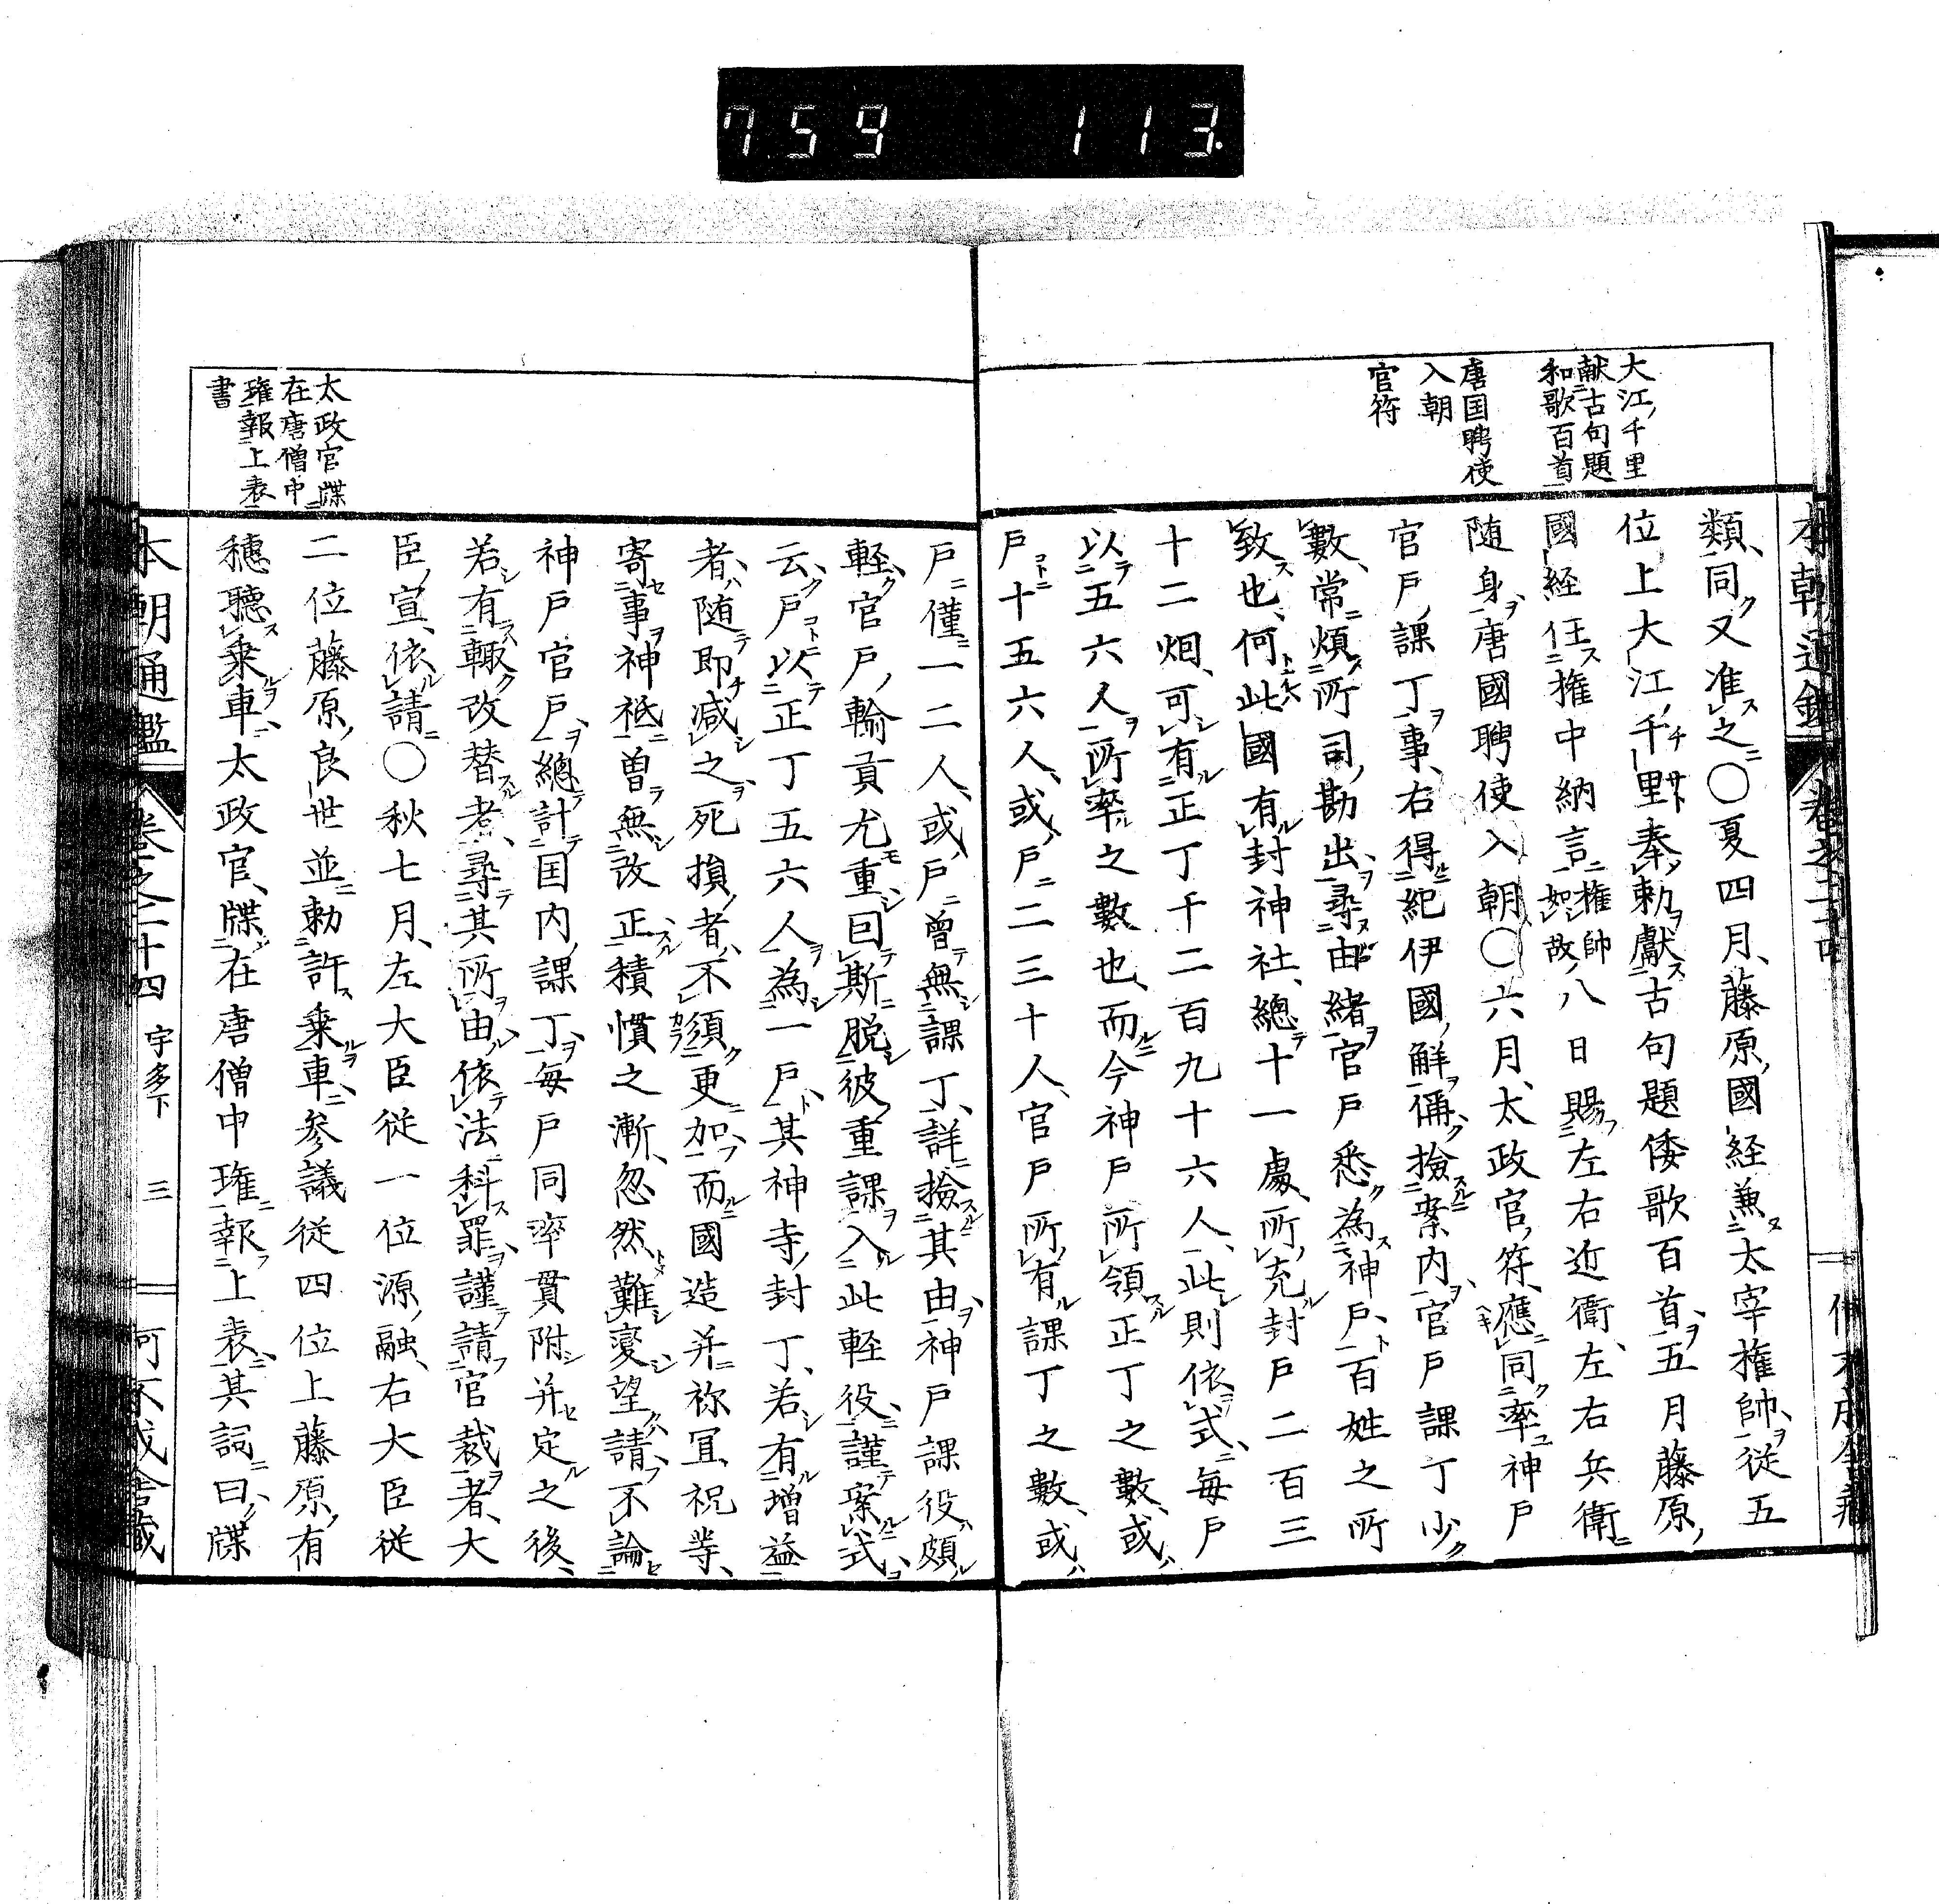 759 113.
大江千里
献古句題
和歌百首
唐国聘使
入朝
官符
類同又准之〇夏四月藤原國経兼太宰権帥従五
位上大江千里奉勅獻古句題倭歌百首五月藤原
國経任権中納言権帥如故八日賜左右近衛左右兵衛
随身唐國聘使入朝〇六月太政官符應同率神戸
官戸課丁事右得紀伊國解偁撿案内官戸課丁少
數常煩所司勘出尋由緒官戸悉為神戸百姓之所
致也何此國有封神社總十一處所充封戸二百三
十二烟可有正丁千二百九十六人此則依式毎戸
以五六人所率之數也而今神戸所領正丁之數或
戸十五六人或戸二三十人官戸所有課丁之數或
太政官牒
在唐僧中
瓘報上表
書
戸僅一二人或戸曽無課丁詳撿其由神戸課役頗
軽官戸輸貢尤重囙斯脱彼重課入此軽役謹案式
云戸以正丁五六人為一戸其神寺封丁若有増益
者随即减之死損者不須更加而國造并祢冝祝等
寄事神祇曽無改正積慣之漸忽然難變望請不論
神戸官戸總計国内課丁毎戸同率貫附并定之後
若有輙改替者尋其所由依法科罪謹請官裁者大
臣宣依請〇秋七月左大臣従一位源融右大臣従
二位藤原良世並勅許乗車参議従四位上藤原有
穗聽乗車太政官牒在唐僧中瓘報上表其詞曰牒
本朝通鑑 卷之二十四 宇多下 三